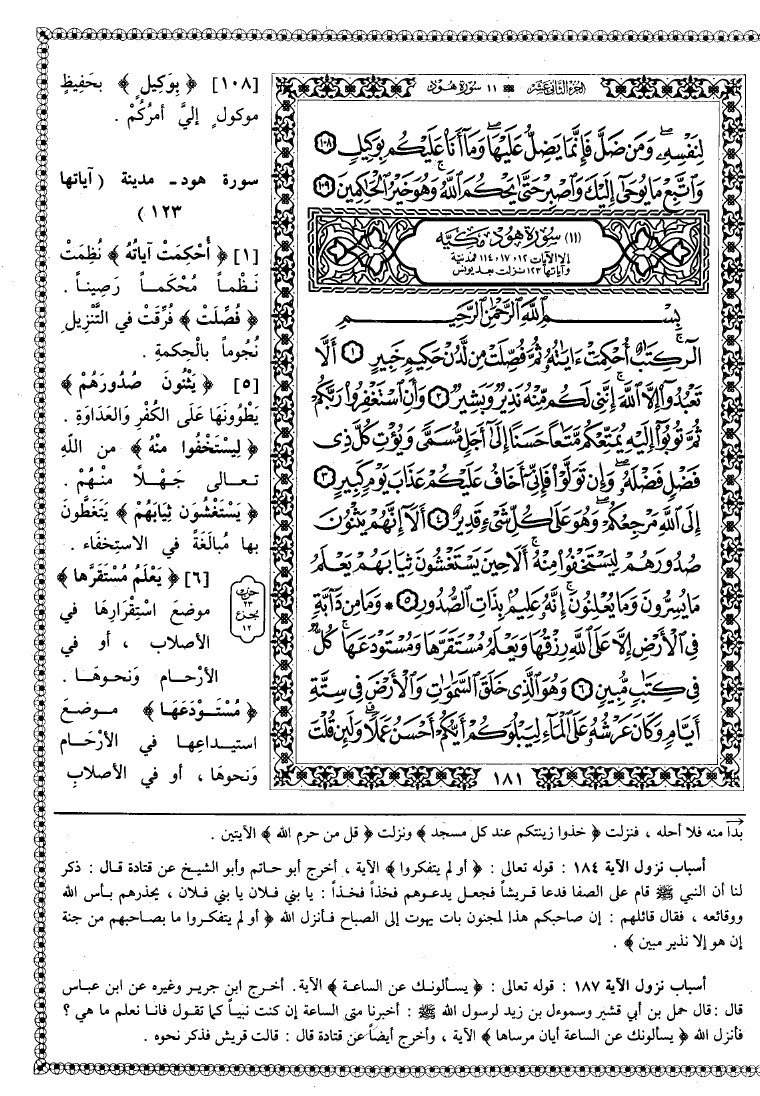 الجزء الثاني عشر ۱۱ سورة هود
لِنَفْسِهِۦ وَمَن ضَلَّ فَإِنَّمَا يَضِلُّ عَلَيْهَا وَمَآ أَنَا۠ عَلَيْكُم بِوَكِيلٍ ١٠٨
وَٱتَّبِعْ مَا يُوحَىٰٓ إِلَيْكَ وَٱصْبِرْ حَتَّىٰ يَحْكُمَ ٱللَّهُ وَهُوَ خَيْرُ ٱلْحَٰكِمِينَ ١٠٩
(١١) سورة هود مكية
إلا الآيات ١٢، ١٧، ١١٤ فمدنية
وآياتها ١٢٣ نزلت بعد يونس
بِسْمِ ٱللَّهِ ٱلرَّحْمَٰنِ ٱلرَّحِيمِ
الٓر كِتَٰبٌ أُحْكِمَتْ ءَايَٰتُهُۥ ثُمَّ فُصِّلَتْ مِن لَّدُنْ حَكِيمٍ خَبِيرٍ ١ أَلَّا
تَعْبُدُوٓا۟ إِلَّا ٱللَّهَ إِنَّنِى لَكُم مِّنْهُ نَذِيرٌ وَبَشِيرٌ ٢ وَأَنِ ٱسْتَغْفِرُوا۟ رَبَّكُمْ
ثُمَّ تُوبُوٓا۟ إِلَيْهِ يُمَتِّعْكُم مَّتَٰعًا حَسَنًا إِلَىٰٓ أَجَلٍ مُّسَمًّى وَيُؤْتِ كُلَّ ذِى
فَضْلٍ فَضْلَهُۥ وَإِن تَوَلَّوْا۟ فَإِنِّىٓ أَخَافُ عَلَيْكُمْ عَذَابَ يَوْمٍ كَبِيرٍ ٣
إِلَى ٱللَّهِ مَرْجِعُكُمْ وَهُوَ عَلَىٰ كُلِّ شَىْءٍ قَدِيرٌ ٤ أَلَآ إِنَّهُمْ يَثْنُونَ
صُدُورَهُمْ لِيَسْتَخْفُوا۟ مِنْهُ أَلَا حِينَ يَسْتَغْشُونَ ثِيَابَهُمْ يَعْلَمُ
مَا يُسِرُّونَ وَمَا يُعْلِنُونَ إِنَّهُۥ عَلِيمٌۢ بِذَاتِ ٱلصُّدُورِ ٥ * وَمَا مِن دَآبَّةٍ
فِى ٱلْأَرْضِ إِلَّا عَلَى ٱللَّهِ رِزْقُهَا وَيَعْلَمُ مُسْتَقَرَّهَا وَمُسْتَوْدَعَهَا كُلٌّ
فِى كِتَٰبٍ مُّبِينٍ ٦ وَهُوَ ٱلَّذِى خَلَقَ ٱلسَّمَٰوَٰتِ وَٱلْأَرْضَ فِى سِتَّةِ
أَيَّامٍ وَكَانَ عَرْشُهُۥ عَلَى ٱلْمَآءِ لِيَبْلُوَكُمْ أَيُّكُمْ أَحْسَنُ عَمَلًا وَلَئِن قُلْتَ
١٨١
حزب
٢٣
جزء
١٢
[١٠٨] ﴿ بِوَكِيلٍ ﴾ بحَفِيظٍ
موكولٍ إليَّ أمرُكُمْ .
سورة هود - مدينة ( آياتها
١٢٣ )
[١] ﴿ أُحْكِمَتْ آياتُهُ ﴾ نُظِمَتْ
نَظْماً مُحْكَماً رَصِيناً .
﴿ فُصِّلَتْ ﴾ فُرِّقَتْ في التَّنْزِيلِ
نُجُوماً بالْحِكمةِ .
[٥] ﴿ يَثْنُونَ صُدُورَهُمْ ﴾
يَطْوُونَهَا عَلَى الكُفْرِ وَالعَدَاوَةِ .
﴿ لِيَسْتَخْفُوا مِنْهُ ﴾ من اللّهِ
تعالى جَهْلاً منْهُمْ .
﴿ يَسْتَغْشُونَ ثِيَابَهُمْ ﴾ يَتَغَطُّونَ
بها مُبالَغَةً في الاستِخفاء .
[٦] ﴿ يَعْلَمُ مُسْتَقَرَّها ﴾
موضعَ اسْتِقْرَارِهَا في
الأصلاب ، أو في
الأرْحام وَنحوهَا .
﴿ مُسْتَوْدَعَهَا ﴾ موضعَ
استيداعِها في الأرْحَام
وَنحوهَا ، أو في الأصلابِ
بدا منه فلا أحله ، فنزلت ﴿ خذوا زينتكم عند كل مسجد ﴾ ونزلت ﴿ قل من حرم الله ﴾ الآيتين .
أسباب نزول الآية ١٨٤ : قوله تعالى : ﴿ أو لم يتفكروا ﴾ الآية ، أخرج أبو حاتم وأبو الشيخ عن قتادة قال : ذكر
لنا أن النبي ﷺ قام على الصفا فدعا قريشاً فجعل يدعوهم فخذاً فخذاً : يا بني فلان يا بني فلان ، يحذرهم بأس الله
ووقائعه ، فقال قائلهم : إن صاحبكم هذا لمجنون بات يهوت إلى الصباح فأنزل الله ﴿ أو لم يتفكروا ما بصاحبهم من جنة
إن هو إلا نذير مبين ﴾ .
أسباب نزول الآية ١٨٧ : قوله تعالى : ﴿ يسألونك عن الساعة ﴾ الآية . أخرج ابن جرير وغيره عن ابن عباس
قال : قال حمل بن أبي قشير وسموءل بن زيد لرسول الله ﷺ : أخبرنا متى الساعة إن كنت نبياً كما تقول فانا نعلم ما هي ؟
فأنزل الله ﴿ يسألونك عن الساعة أيان مرساها ﴾ الآية ، وأخرج أيضاً عن قتادة قال : قالت قريش فذكر نحوه .